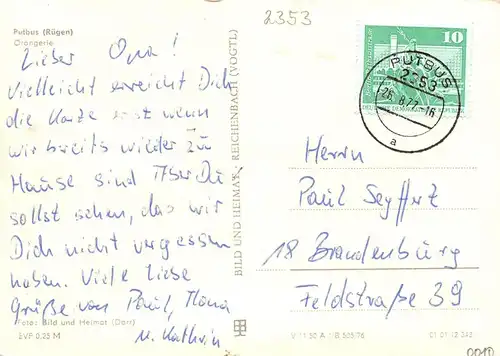 Putbus (Rügen)
Orangerie
Lieber Opa!
Vielleicht erreicht Dich
die Karte erst wenn
wir bereits wieder zu
Hause sind Aber Du
sollst sehen, das wir
Dich nicht vergessen
haben. Viele liebe
Grüße von Paul, Ilona
u. Kathrin
Foto: Bild und Heimat (Darr)
EVP 0,25 M
BILD UND HEIMAT · REICHENBACH (VOGTL)
2353
10
PUTBUS
2353
a
Herrn
Paul Seyffert
18 Brandenburg
Feldstraße 39
01 01 12 342